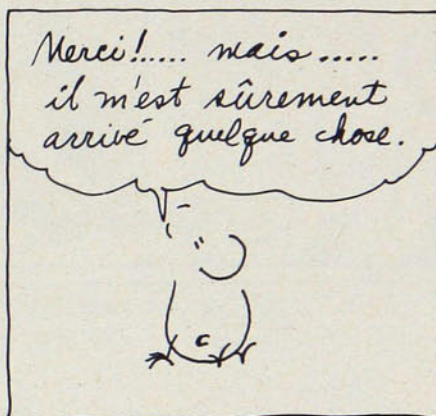 Merci!..... mais.....
il m'est sûrement
arrivé quelque chose.